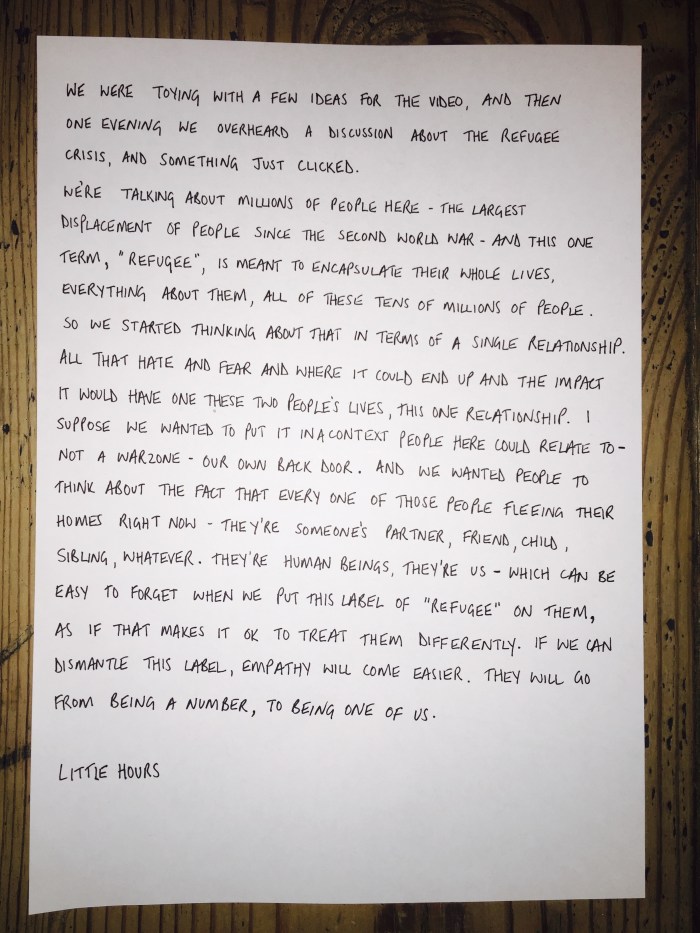 WE WERE TOYING WITH A FEW IDEAS FOR THE VIDEO, AND THEN
ONE EVENING WE OVERHEARD A DISCUSSION ABOUT THE REFUGEE
CRISIS, AND SOMETHING JUST CLICKED.
WE'RE TALKING ABOUT MILLIONS OF PEOPLE HERE - THE LARGEST
DISPLACEMENT OF PEOPLE SINCE THE SECOND WORLD WAR - AND THIS ONE
TERM, "REFUGEE", IS MEANT TO ENCAPSULATE THEIR WHOLE LIVES,
EVERYTHING ABOUT THEM, ALL OF THESE TENS OF MILLIONS OF PEOPLE.
SO WE STARTED THINKING ABOUT THAT IN TERMS OF A SINGLE RELATIONSHIP.
ALL THAT HATE AND FEAR AND WHERE IT COULD END UP AND THE IMPACT
IT WOULD HAVE ONE THESE TWO PEOPLE'S LIVES, THIS ONE RELATIONSHIP. I
SUPPOSE WE WANTED TO PUT IT IN A CONTEXT PEOPLE HERE COULD RELATE TO -
NOT A WARZONE - OUR OWN BACK DOOR. AND WE WANTED PEOPLE TO
THINK ABOUT THE FACT THAT EVERY ONE OF THOSE PEOPLE FLEEING THEIR
HOMES RIGHT NOW - THEY'RE SOMEONE'S PARTNER, FRIEND, CHILD,
SIBLING, WHATEVER. THEY'RE HUMAN BEINGS, THEY'RE US - WHICH CAN BE
EASY TO FORGET WHEN WE PUT THIS LABEL OF "REFUGEE" ON THEM,
AS IF THAT MAKES IT OK TO TREAT THEM DIFFERENTLY. IF WE CAN
DISMANTLE THIS LABEL, EMPATHY WILL COME EASIER. THEY WILL GO
FROM BEING A NUMBER, TO BEING ONE OF US.
LITTLE HOURS